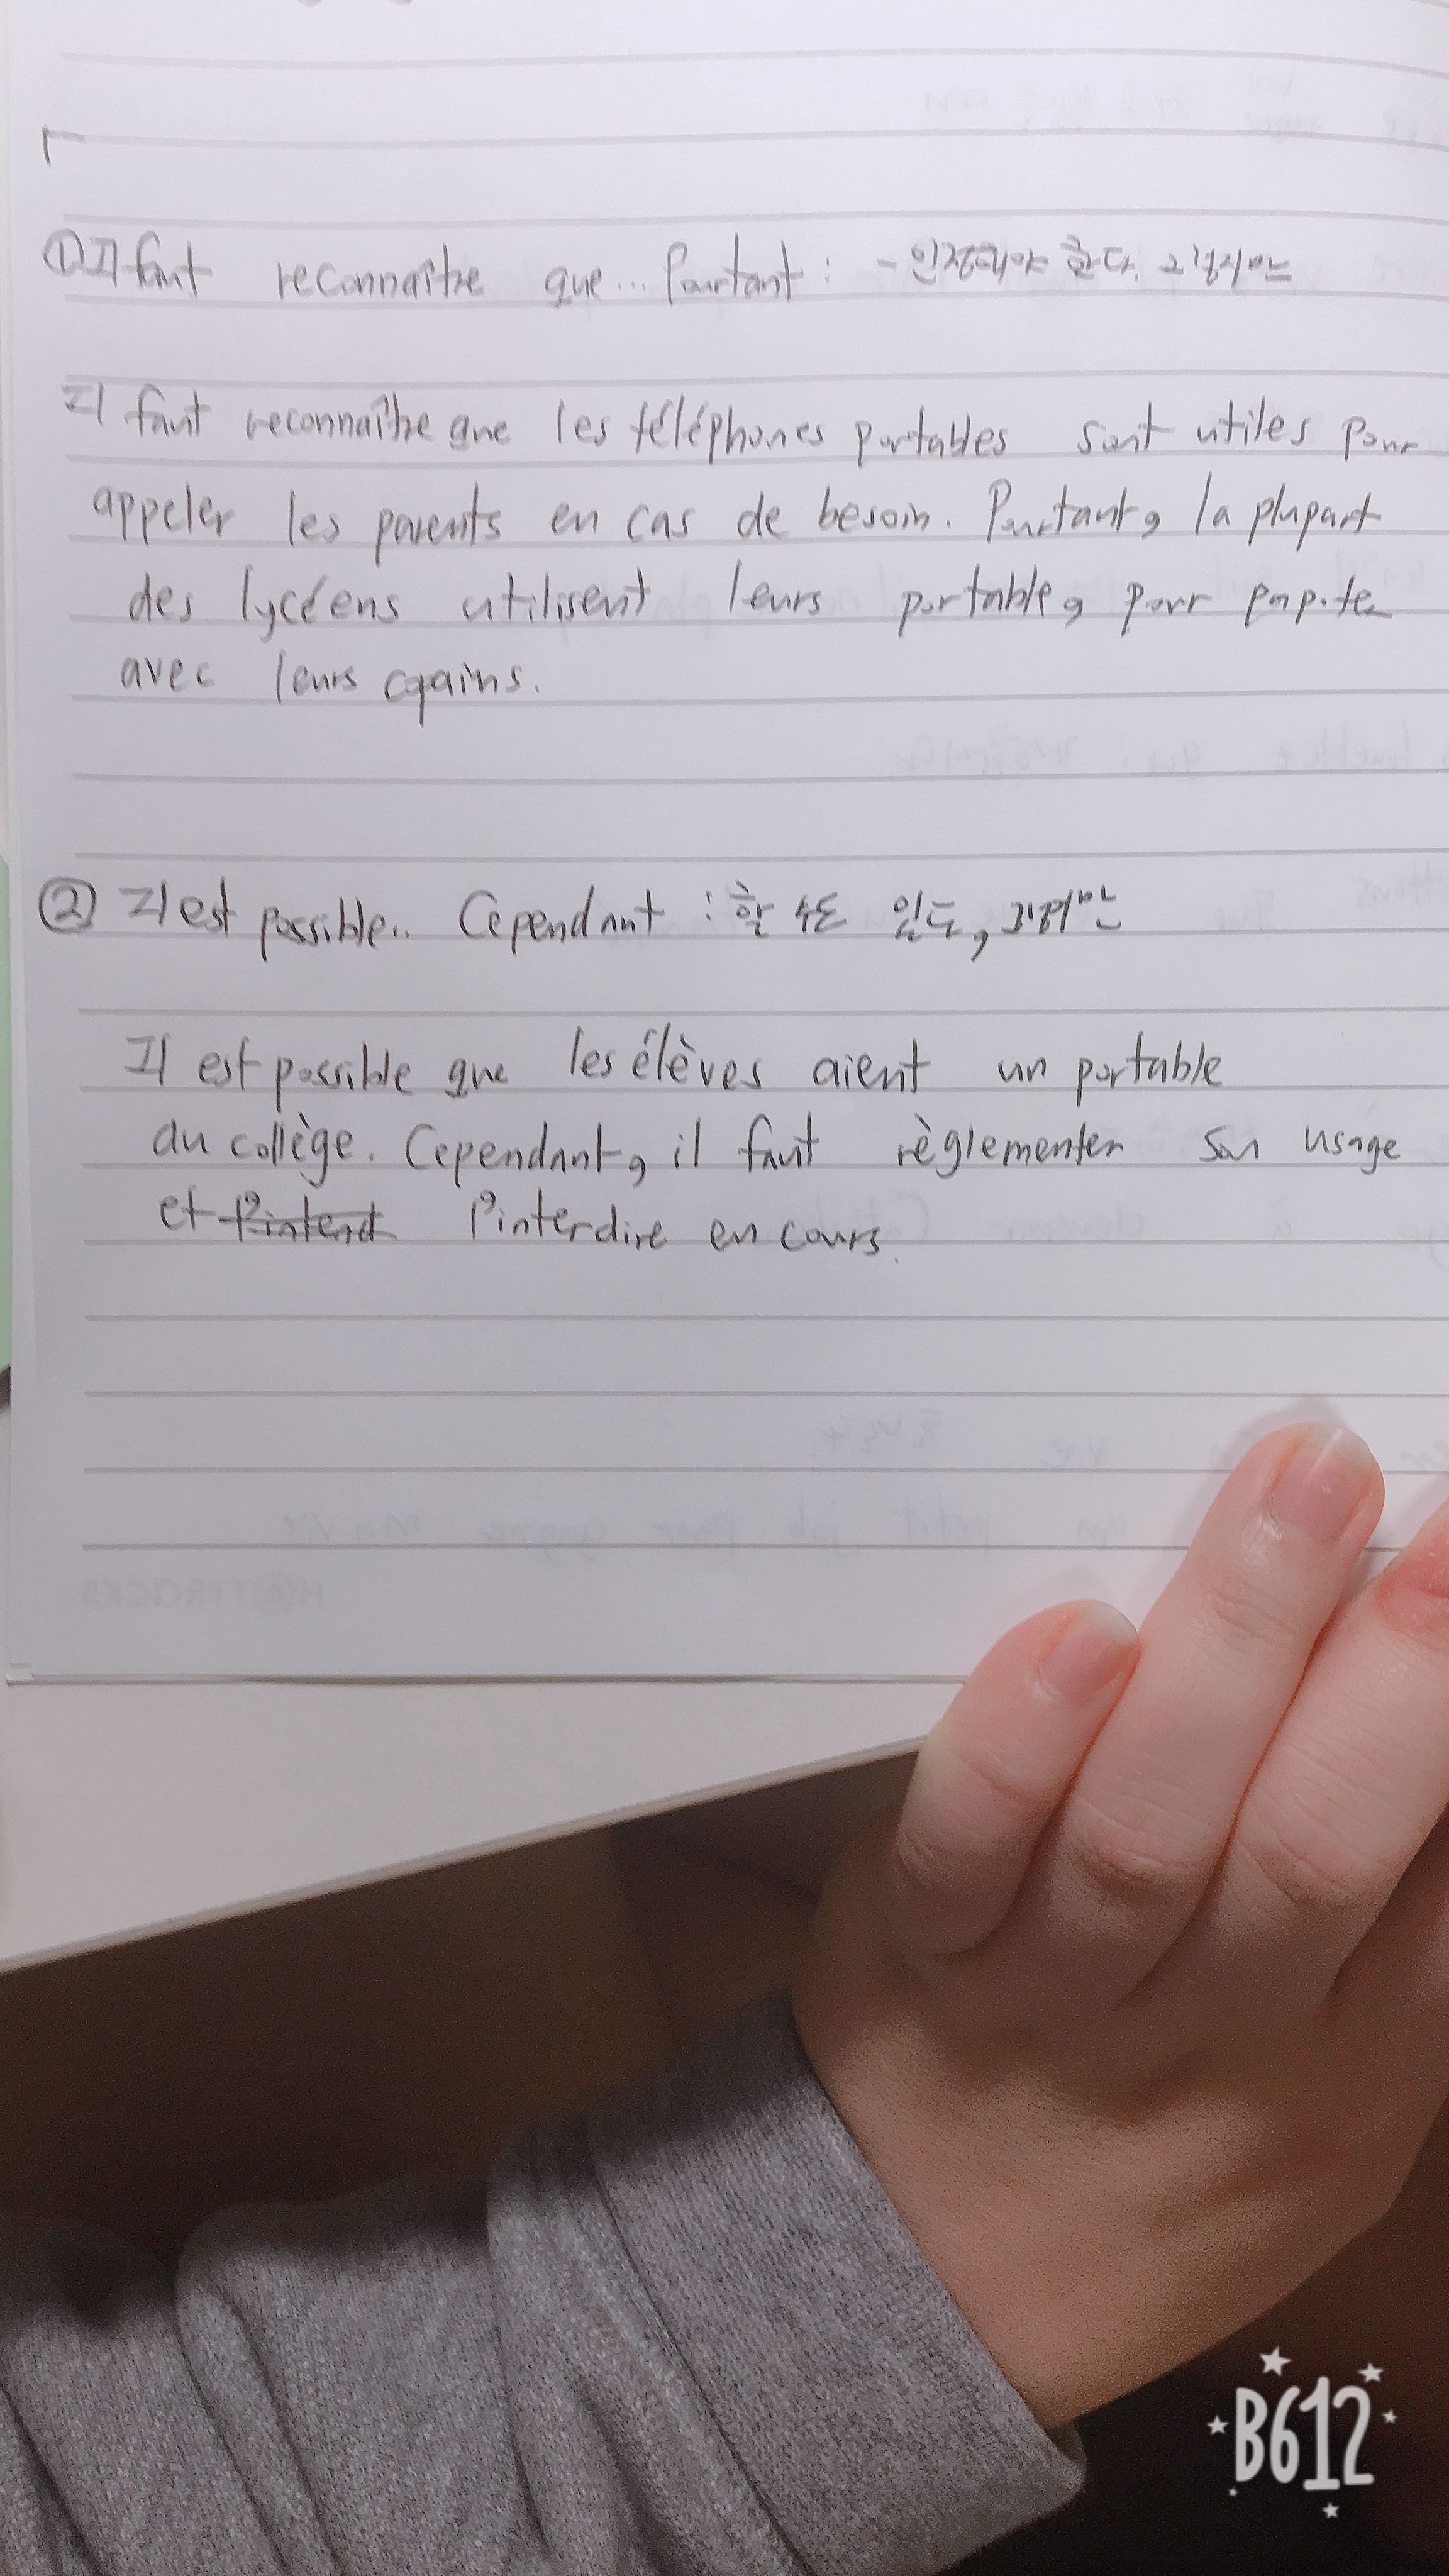 ① Il faut reconnaître que... Pourtant : - 인정해야 한다. 그렇지만
Il faut reconnaître que les téléphones portables sont utiles pour
appeler les parents en cas de besoin. Pourtant, la plupart
des lycéens utilisent leurs portable, pour papoter
avec leurs copains.
② Il est possible.. Cependant : 할 수도 있도,
Il est possible que les élèves aient un portable
au collège. Cependant, il faut règlementer son usage
et l'interdire en cours.
HOTTRACKS
B612